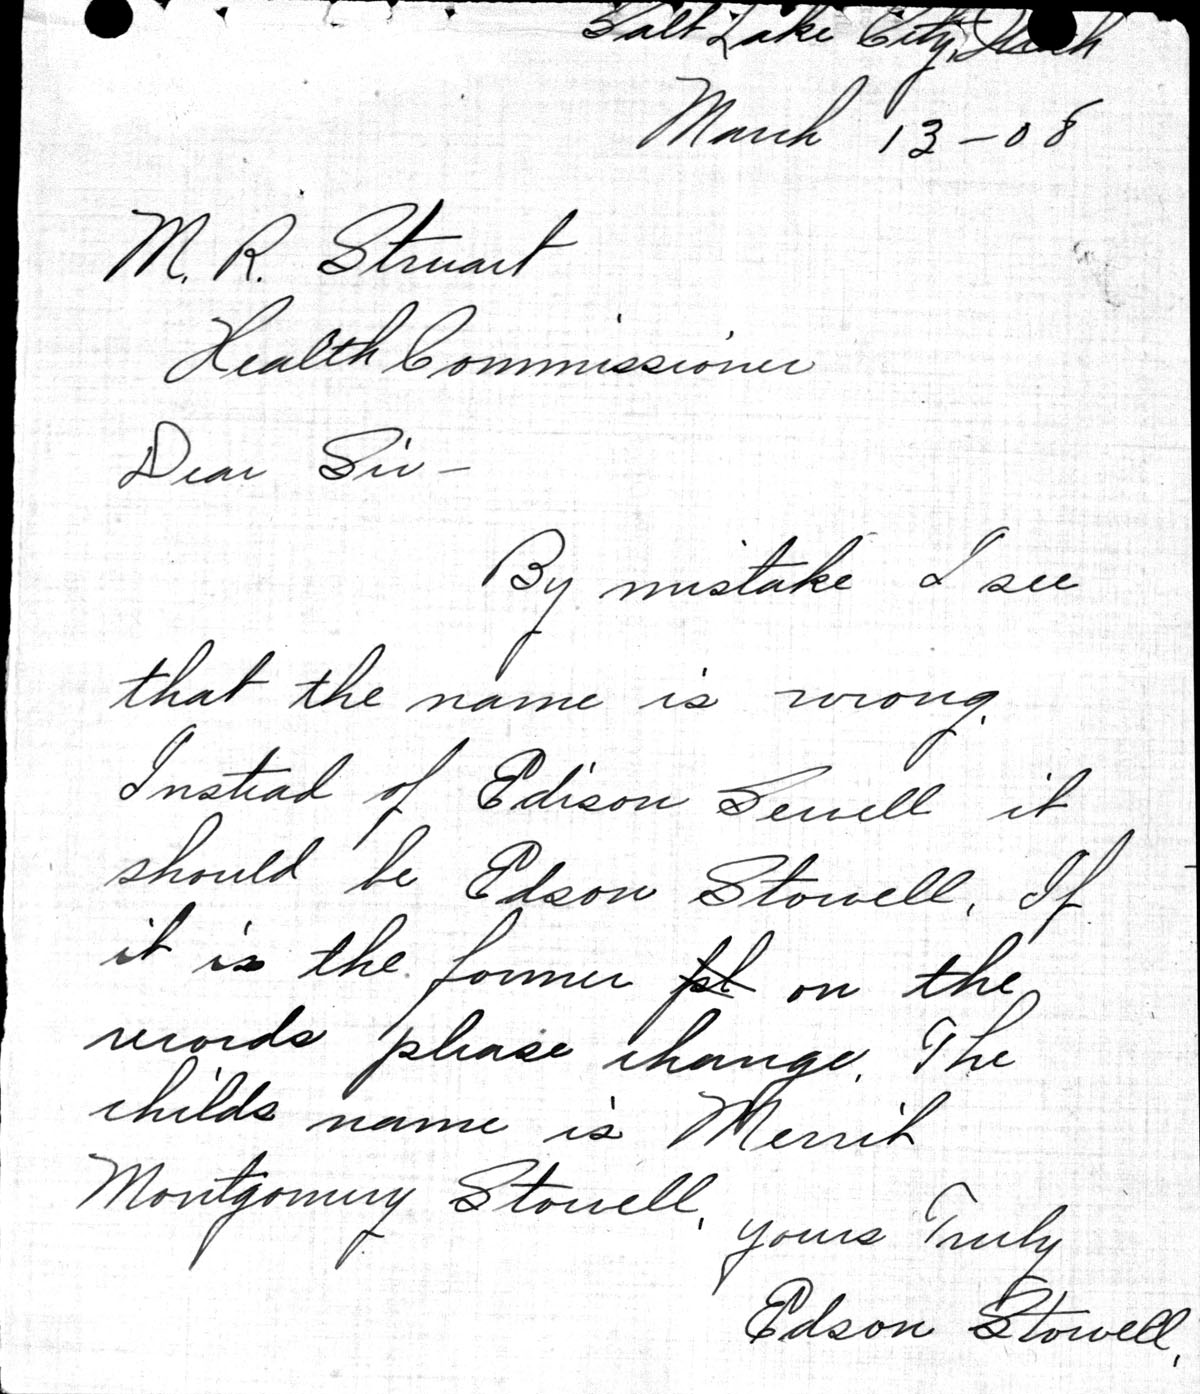 Salt Lake City, Utah
March 13-08
M. R. Stuart
Health Commissioner
Dear Sir -
By mistake I see
that the name is wrong.
Instead of Edison Sewell it
should be Edson Stowell. If
it is the former on the
records please change. The
childs name is Merrit
Montgomery Stowell.
yours Truly
Edson Stowell.